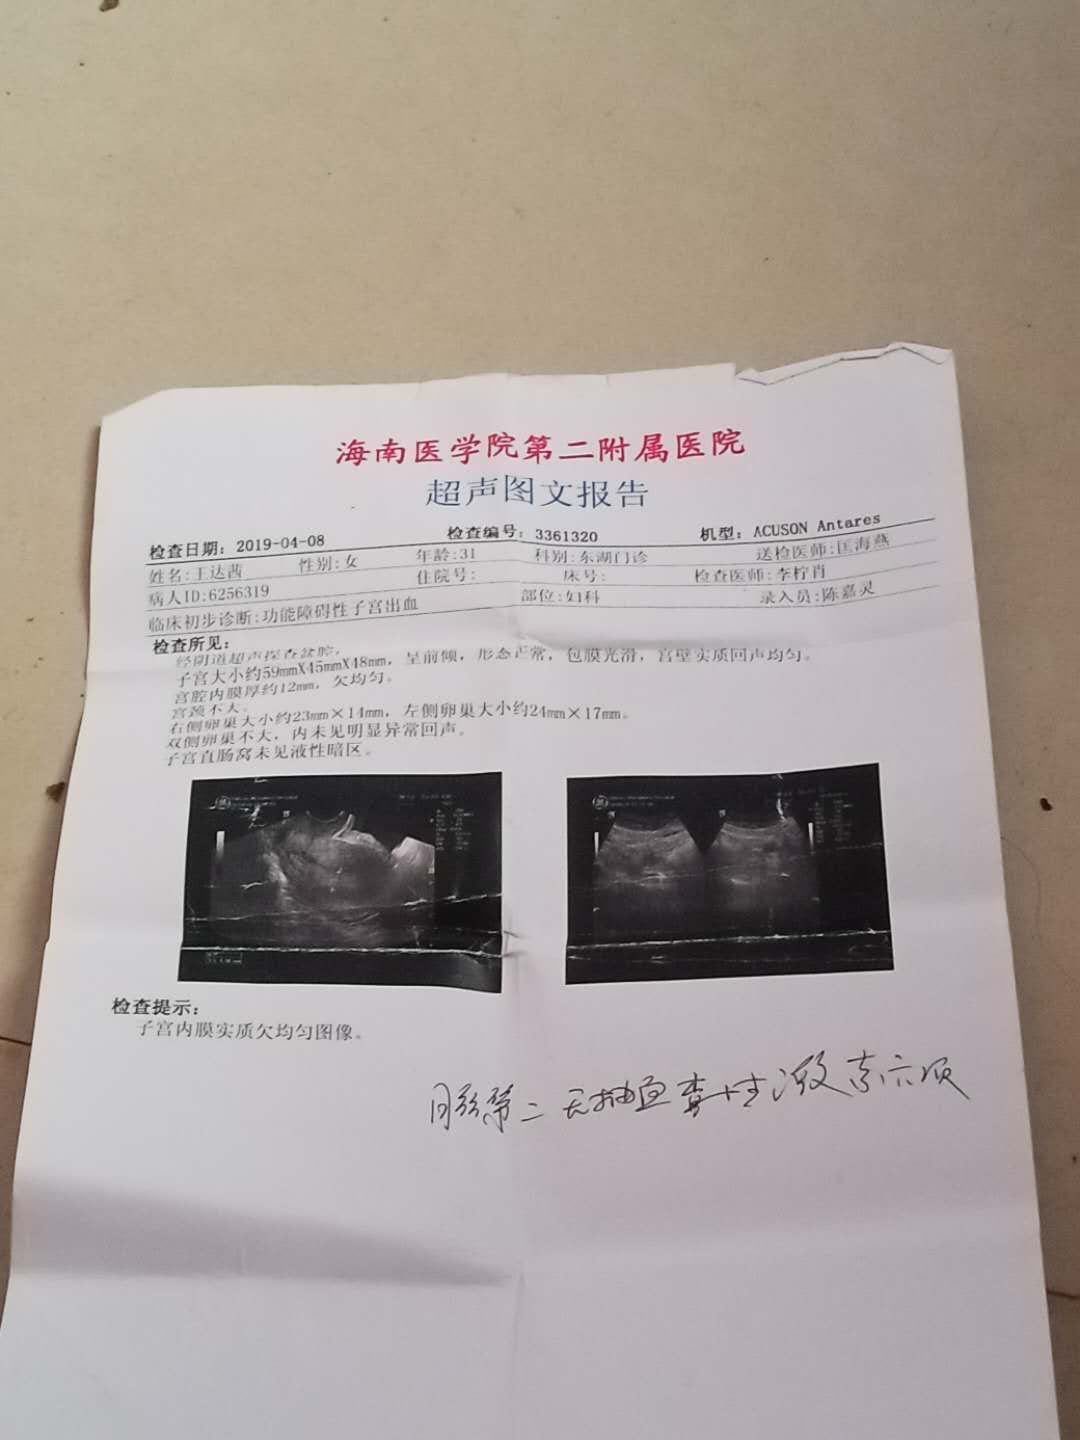 海南医学院第二附属医院
超声图文报告
检查日期: 2019-04-08 检查编号: 3361320 机型: ACUSON Antares
姓名:王达茜 性别:女 年龄:31 科别:东湖门诊 送检医师:匡海燕
病人ID:6256319 住院号: 床号: 检查医师:李柠肖
临床初步诊断:功能障碍性子宫出血 部位:妇科 录入员:陈嘉灵
检查所见:
经阴道超声探查盆腔,
子宫大小约59mmX45mmX48mm, 呈前倾, 形态正常, 包膜光滑, 宫壁实质回声均匀。
宫腔内膜厚约12mm, 欠均匀。
宫颈不大。
右侧卵巢大小约23mm×14mm, 左侧卵巢大小约24mm×17mm。
双侧卵巢不大, 内未见明显异常回声。
子宫直肠窝未见液性暗区。
检查提示:
子宫内膜实质欠均匀图像。
月经第二天抽血查性激素六项